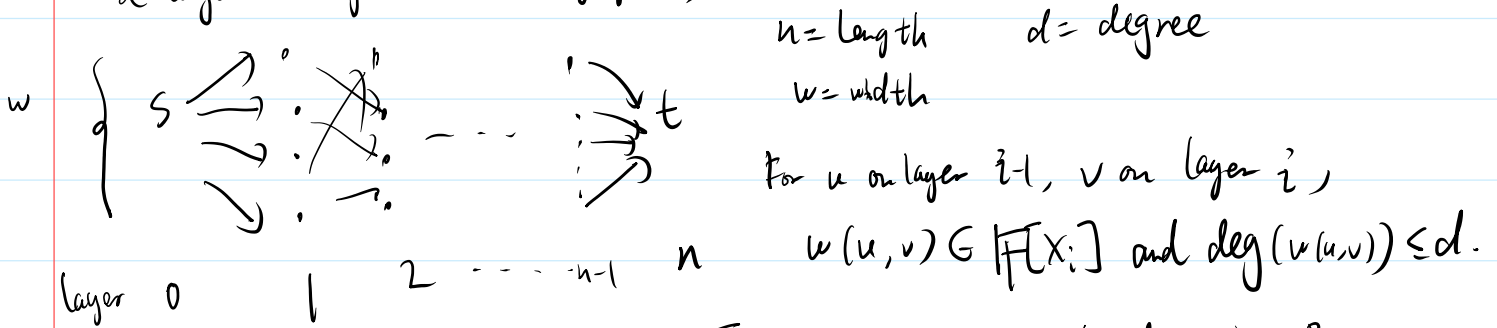 n = length d = degree
w = width
w { s t
For u on layer i-1, v on layer i,
w(u,v) ∈ 𝔽[X_i] and deg(w(u,v)) ≤ d.
layer 0 1 2 ---- n-1 n